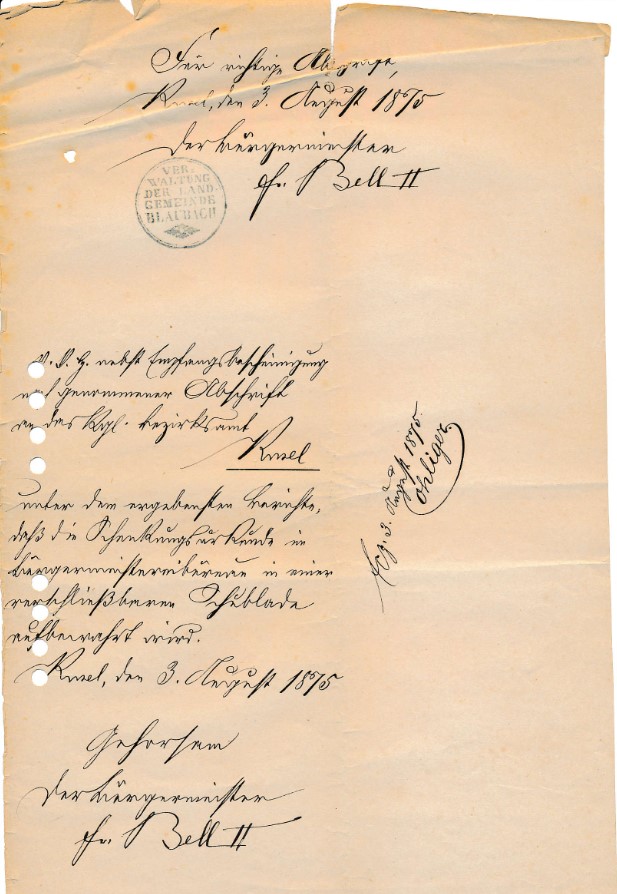 Für richtige Abschrift,
Kusel, den 3. August 1875
Der Bürgermeister
Fr. Bell II
VER
WALTUNG
DER LAND-
GEMEINDE
BLAUBACH
nebst Empfangsbescheinigung
nach genommener Abschrift
an das Kgl. Bezirksamt
Kusel
unter dem ergebensten Berichte,
daß die Schenkungsurkunde im
Bürgermeistereibüreau in einer
verschließbaren Schublade
aufbewahrt wird.
Kusel, den 3. August 1875
Gehorsam
Der Bürgermeister
Fr. Bell II
3. August 1875.
Öhliger